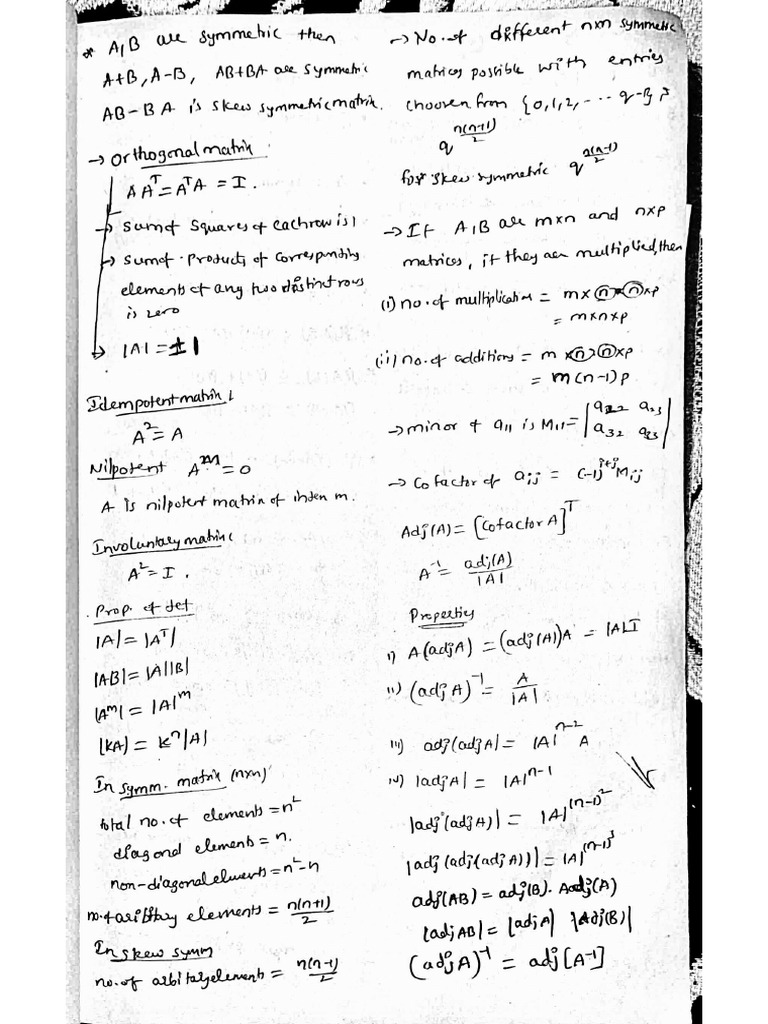 * A,B are symmetric then
A+B, A-B, AB+BA are symmetric
AB-BA is skew symmetric matrix.
→ Orthogonal matrix
AAᵀ = AᵀA = I.
→ Sum of Squares of each row is 1
→ Sum of Products of corresponding
elements of any two distinct rows
is zero
→ |A| = ±1
Idempotent matrix
A² = A
Nilpotent Aᵐ = 0
A is nilpotent matrix of index m.
Involuntary matrix
A² = I.
Prop. of det
|A| = |Aᵀ|
|AB| = |A||B|
|Aᵐ| = |A|ᵐ
|KA| = Kⁿ|A|
In symm. matrix (nxn)
total no. of elements = n²
diagonal elements = n.
non-diagonal elements = n²-n
no. of aribitary elements = n(n+1)/2
In skew symm
no. of arbitary elements = n(n-1)/2
→ No. of different nxn symmetric
matrices possible with entries
choosen from {0,1,2,---- q-1} is
q^(n(n+1)/2)
for skew symmetric q^(n(n-1)/2)
→ If A,B are mxn and nxp
matrices, if they are multiplied, then
(i) no. of multiplication = m x n x n x p
= mxnxp
(ii) no. of additions = m x n x n x p
= m(n-1)p
→ minor of a₁₁ is M₁₁ = |a₂₂ a₂₃
a₃₂ a₃₃|
→ Cofactor of aᵢⱼ = (-1)^(i+j) Mᵢⱼ
Adj(A) = [Cofactor A]ᵀ
A⁻¹ = adj(A)/|A|
Properties
i) A(adjA) = (adj(A))A = |A|I
ii) (adj A)⁻¹ = A/|A|.
iii) adj(adjA) = |A|ⁿ⁻² A
iv) |adjA| = |A|ⁿ⁻¹
|adj(adjA)| = |A|^(n-1)²
|adj(adj(adjA))| = |A|^(n-1)³
adj(AB) = adj(B). Adj(A)
|adjAB| = |adjA| |Adj(B)|
(adjA)⁻¹ = adj[A⁻¹]